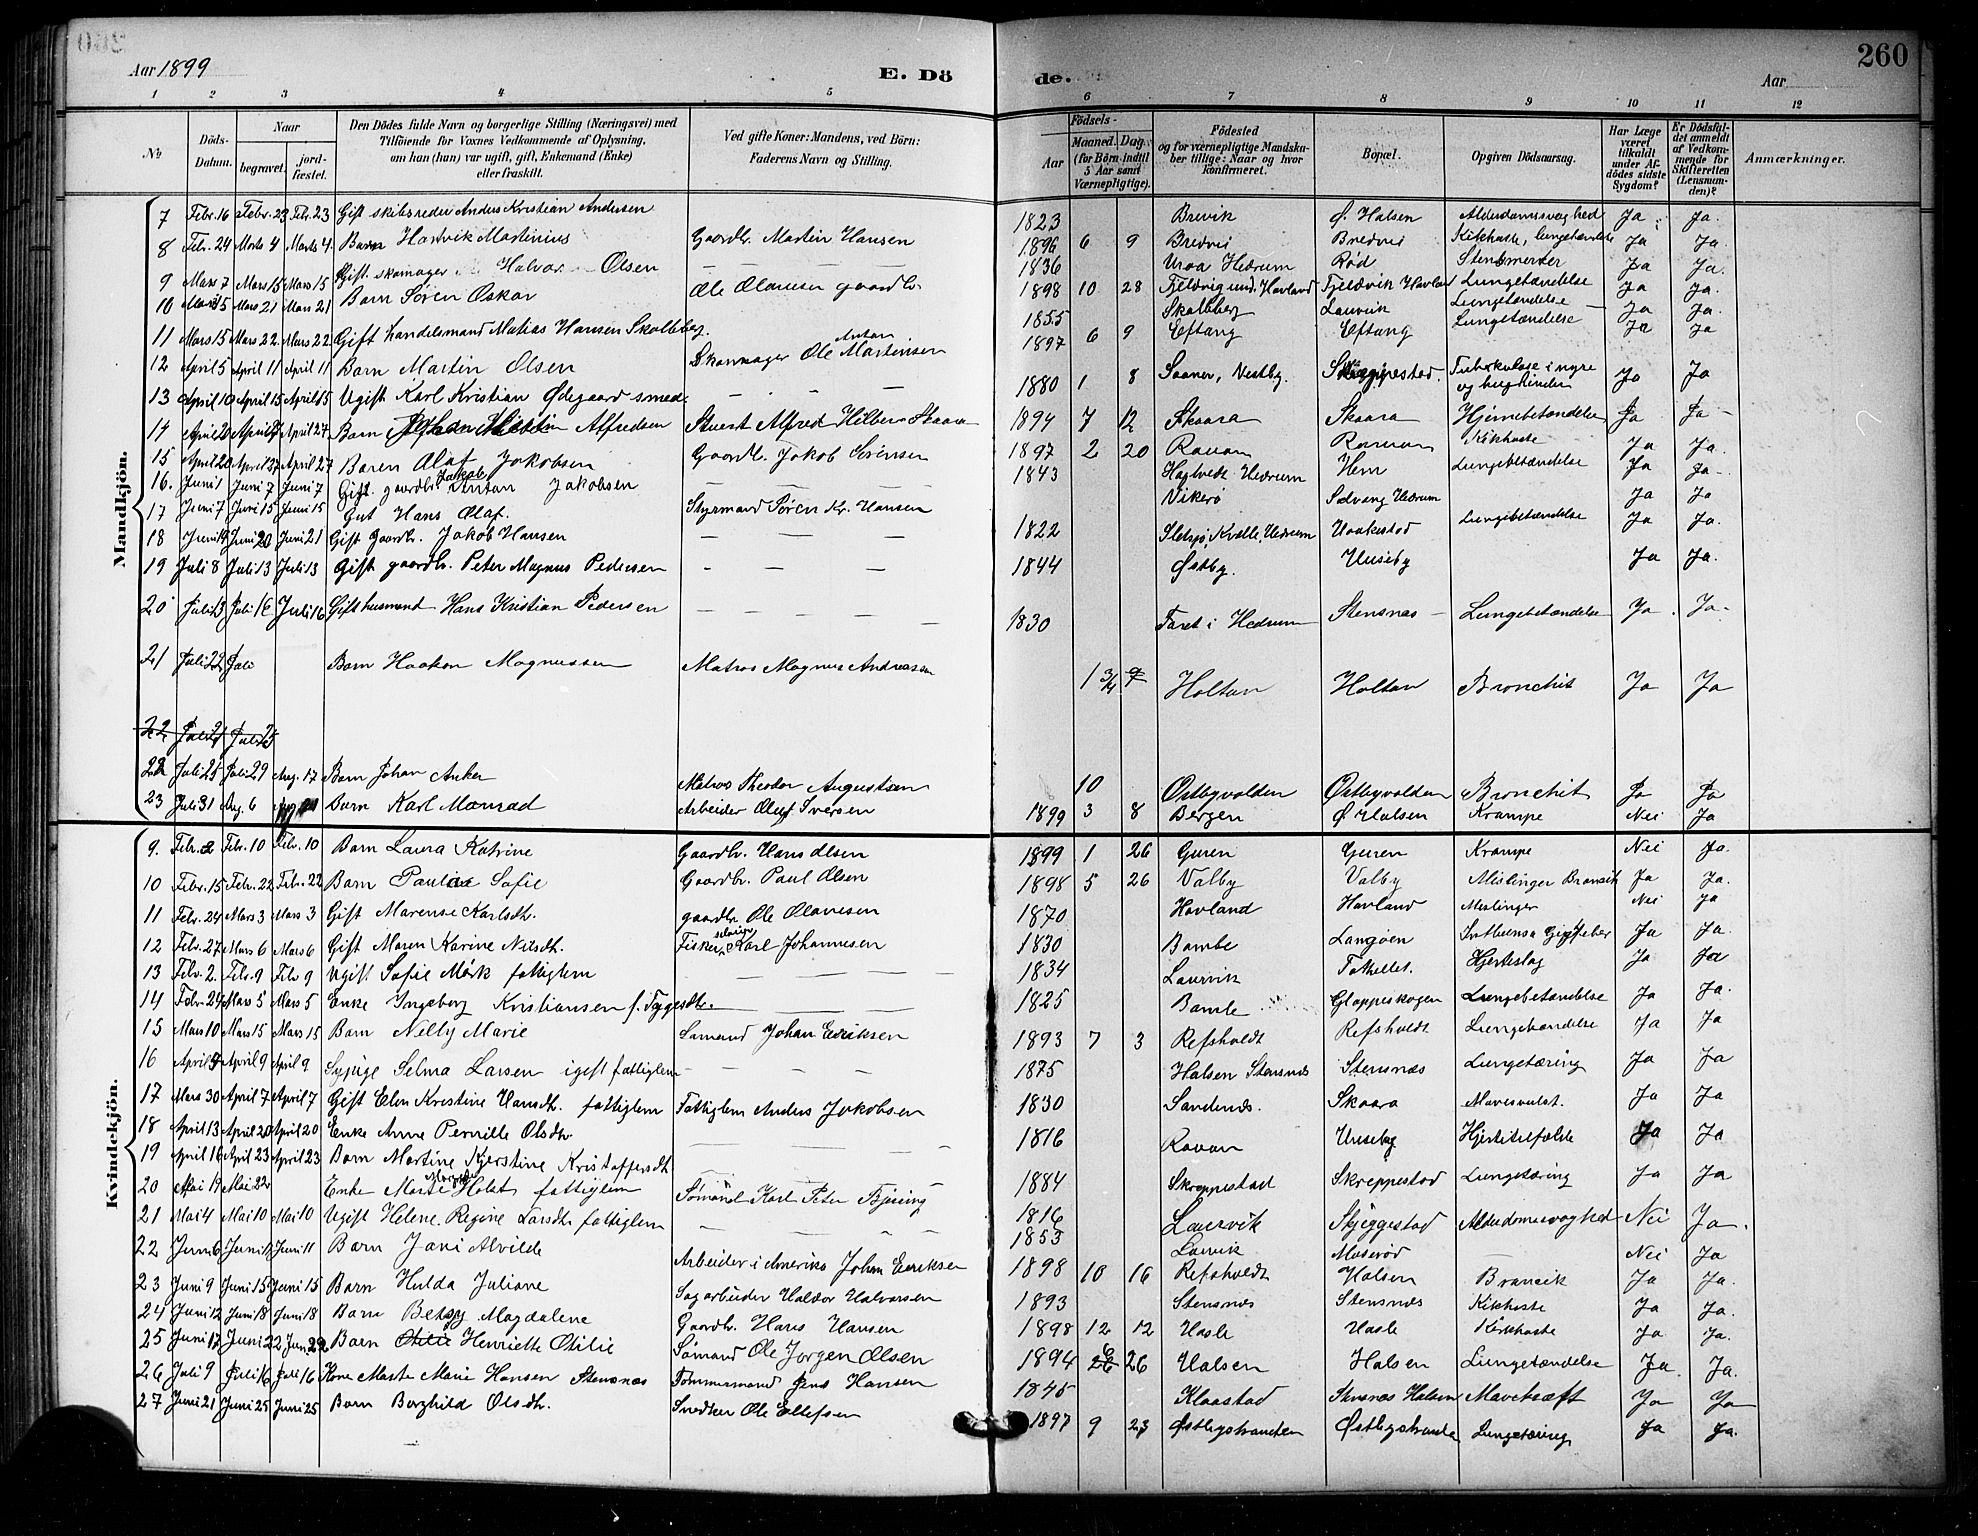 Aar 1899
E. Dö
de.
Aar
260
1 2 3 4 5 6 7 8 9 10 11 12
No
Döds-Datum.
Naar
begravet.
jord-fæstet.
Den Dödes fulde Navn og borgerlige Stilling (Næringsvei) med
Tilföiende for Voxnes Vedkommende af Oplysning,
om han (hun) var ugift, gift, Enkemand (Enke)
eller fraskilt.
Ved gifte Koner: Mandens, ved Börn:
Faderens Navn og Stilling.
Födsels-
Aar
Maaned. Dag.
(for Börn indtil
5 Aar samt
Værnepligtige).
Födested
og for værnepligtige Mandska-
ber tillige: Naar og hvor
konfirmeret.
Bopæl.
Opgiven Dödsaarsag.
Har Læge
været
tilkaldt
under Af-
dödes sidste
Sygdom?
Er Dödsfal-
det anmeldt
af Vedkom-
mende for
Skifteretten
(Lensman-
den)?
Anmærkninger.
Mandkjön.
7 Febr. 16 Febr. 23 Febr. 23 Gift skibsreder Anders Kristian Andersen 1823 Brevik Ø. Halsen Alderdomssvaghed Ja Ja.
8 Febr. 24 Marts 4 Marts 4 Barn Hartvik Martinius Gaardbr. Martin Hansen 1896 6 9 Bredvei Bredvei Kikhoste, Lungetændelse Ja Ja.
9 Mars 7 Mars 15 Mars 15 Gift skomager Halvor Olsen 1836 Hedrum Rød Stensmerter Ja Ja.
10 Mars 15 Mars 21 Mars 21 Barn Søren Oskar Ole Olausen gaardbr. 1898 10 28 Tjeldvik Havland Lungetændelse Ja Ja.
11 Mars 15 Mars 22 Mars 22 Gift handelsmand Matias Hansen Skalleberg. 1855 Skalleberg Laurvik Lungetændelse Ja Ja.
12 April 5 April 11 April 11 Barn Martin Olsen Skomager Ole Anton Martinsen 1897 6 9 Eftang Eftang Lungetændelse Ja Ja
13 April 10 April 15 April 15 Ugift Karl Kristian Ødegaard smed 1880 1 8 Saaner, Vestby. Skreppestad. Tuberkulose i nyre og bughinden Ja Ja
14 April 20 April 27 April 27 Barn Alfredsen Stuert Alfred Skaara 1894 7 12 Skaara Skaara Hjernebetændelse Ja Ja
15 April 20 April 27 April 27 Barn Olaf Jakobsen Gaardbr. Jakob Sörensen 1897 2 20 Rauan Rauan Kikhoste Ja Ja.
16. Juni 1 Juni 7 Juni 7 Gift. gaardbr. Jakob Anton Jakobsen 1843 Hagtvedt Hedrum Hem Lungebetændelse Ja Ja
17 Juni 7 Juni 15 Juni 15 Gut Hans Olaf. Styrmand Søren Kr. Hansen Vikerø Sølvang Hedrum Ja Ja
18 Juni 20 Juni 21 Gift Gaardbr. Jakob Hansen 1822 Kvelle, Hedrum Haakestad Lungebetændelse Ja Ja.
19 Juli 8 Juli 13 Juli 13 Gift gaardbr. Peter Magnus Pedersen 1844 Østby. Huseby Ja Ja.
20 Juli 13 Juli 16 Juli 16 Gift husmand Hans Kristian Pedersen 1830 Faret i Hedrum Stensnæs Lungebetændelse Ja Ja
21 Juli 22 Juli Barn Haakon Magnussen Matros Magnus Andreassen 1 3/4 Holtan Holtan Bronchit Ja Ja
22 Juli 21 Juli 25
22 Juli 25 Juli 29 Aug. 17 Barn Johan Anker Matros Theodor Augustsen 10 Østbyvolden Østbyvolden Bronchit Ja Ja
23 Juli 31 Aug. 6 Barn Karl Monrad Arbeider Oluf Iversen 1899 3 8 Bergen Ø Halsen Krampe Nei Ja
Kvindekjön.
9. Febr. 2 Febr. 10 Febr. 10 Barn Laura Katrine Gaardbr. Hans Olsen 1899 1 26 Guren Guren Krampe Nei Ja.
10 Febr. 15 Febr. 22 Febr. 22 Barn Pauline Sofie Gaardbr. Paul Olsen 1898 5 26 Valby Valby Meslinger Bronsik Ja Ja.
11 Febr. 24 Mars 3 Mars 3 Gift Marense Karlsdt. gaardbr Ole Olavesen 1870 Havland Havland Meslinger Nei Ja
12 Febr. 27 Mars 6 Mars 6 Gift Maren Karine Nilsdt. Fisker Karl Johannesen 1830 Bamble Langøen Ja Ja.
13 Febr. 2. Febr. 9 Febr 9 Ugift Sofie Mørk fattiglem 1834 Laurvik Hjerteslag Ja Ja
14 Febr. 24 Mars 5 Mars 5 Enke Ingeborg Kristiansen f. Tyggesdtr. 1825 Bamle Gloppeskogen Lungebetændelse Ja Ja.
15 Mars 10 Mars 15 Mars 15 Barn Nelly Marie Sømand Johan Eriksen 1893 7 3 Refsholdt Refsholdt Lungetændelse Ja Ja
16 April 9 April 9 Sypige Selma Larsen igift fattiglem 1875 Halsen Stensnæs Stensnæs Lungetæring Ja Ja
17 Mars 30 April 7 April 7 Gift Elen Kristine Hansdt. fattiglem Fattiglem Anders Jakobsen 1830 Sandenæs. Skaara Mavesvulst. Ja Ja
18 April 13 April 20 April 20 Enke Anne Pernille Olsdtr. 1816 Rauan Huseby Hjertetilfælde Ja Ja
19 April 16 April 23 April 23 Barn Martine Kjerstine Kristoffersdt. 1884 Skreppestad Skreppestad Lungetæring Ja Ja
20 Mai 19 Mai 22 Enke Marte Holst fattiglem Sømand Karl Peter Bjering 1816 Laurvik Skjeggestad Alderdomssvaghed Nei Ja.
21 Mai 4 Mai 10 Mai 10 Ugift Helene Regine Larsdtr fattiglem 1853 Larvik Moserød Nei Ja
22 Juni 6 Juni 11 Juni 11 Barn Jani Alvilde Arbeider i Amerika Johan Eriksen 1898 10 16 Refsholdt Halsen Bronsik Ja Ja.
23 Juni 9 Juni 15 Juni 15 Barn Hulda Juliane Sagarbeider Haldor Halvorsen 1893 Stensnæs Stensnæs Kikhoste Ja Ja.
24 Juni 12 Juni 18 Juni 18 Barn Betsy Magdalene Gaardbr. Hans Hansen 1898 12 12 Hasle Hasle Kikhoste Ja Ja.
25 Juni 17 Juni 22 Juni 22 Barn Otilie Henriette Otilie Sømand Ole Jorgen Olsen 1894 26 Halsen Halsen Lungetændelse Ja. Ja.
26 Juli 9 Juli 16 Juli 16 Kone Marte Marie Hansen Stensnæs Tømmermand Jens Hansen 1845 Klaastad Stensnæs Halsen Mavekræft Ja Ja
27 Juni 21 Juni 25 Juni 25 Barn Borghild Olsdt. Snedker Ole Ellefsen 1897 9 23 Østbystranden Østbystranda Lungetæring Ja Ja.